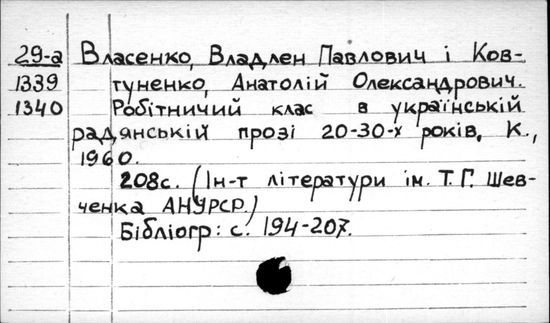 29-а Власенко, Владлен Павлович і Ков-
1339 туненко, Анатолій Олександрович.
1340 Робітничий клас в українській
радянській прозі 20-30-х років, К.,
1960.
208с. (Ін-т літератури ім. Т.Г. Шев-
ченка АНУРСР.)
Бібліогр: с. 194-207.